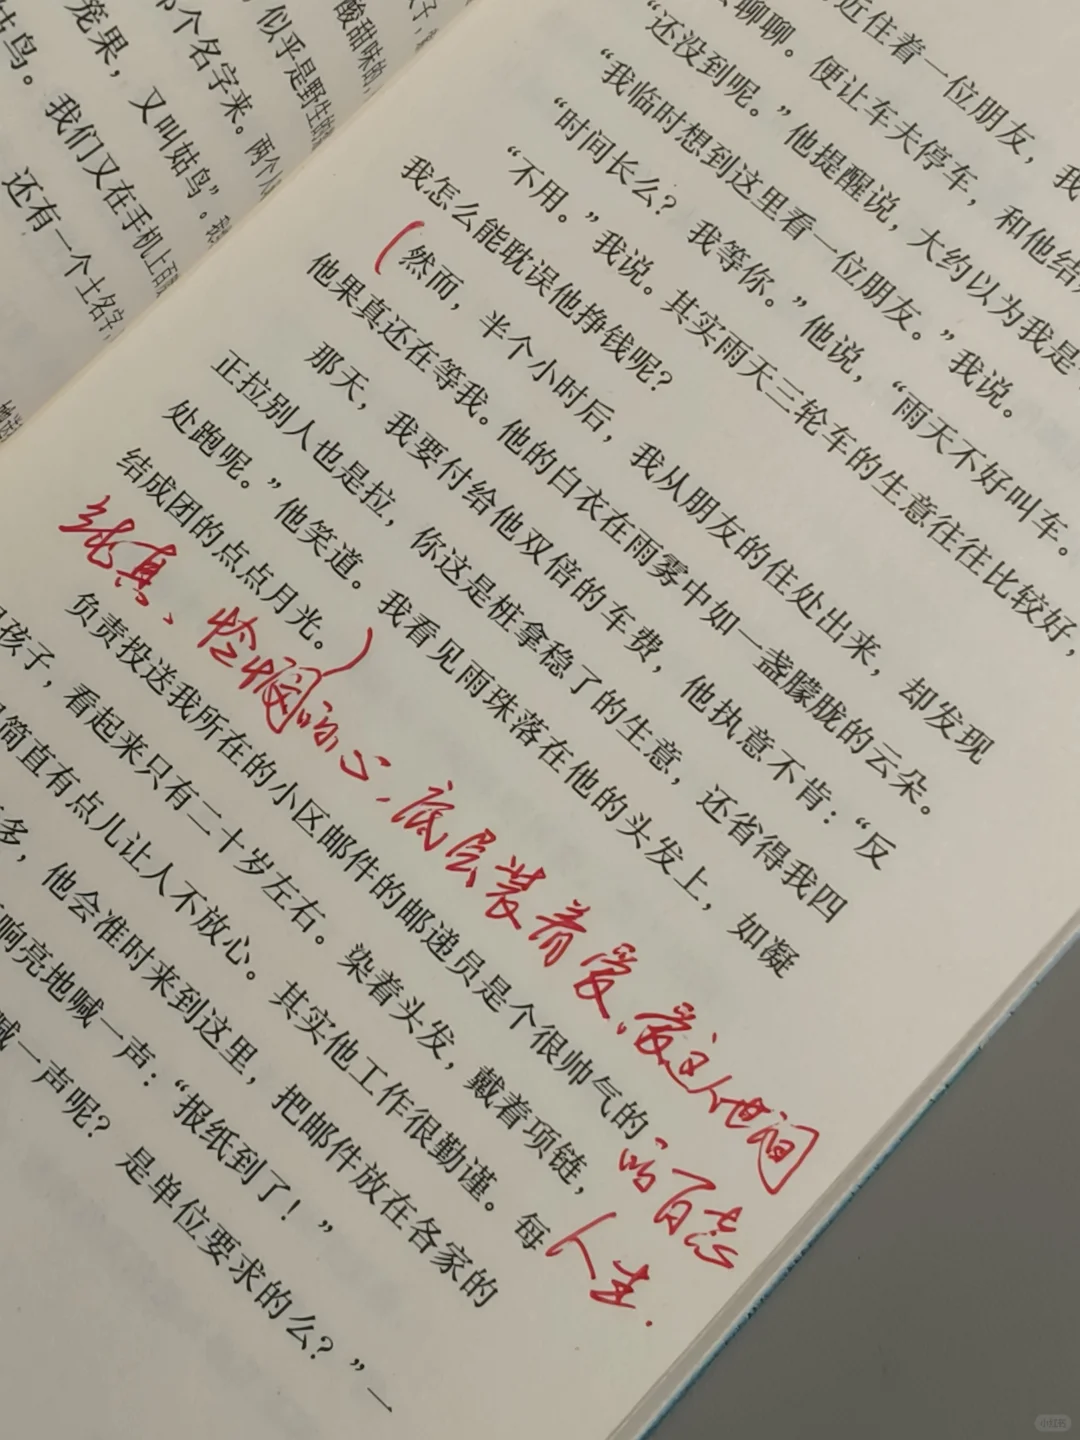 笼果，又叫姑鸟”。我
个名字来。两个人
似乎是野生的
酸甜味的，
姑鸟。我们又在手机上百度
还有一个土名字，
近住着一位朋友，我
聊聊。便让车夫停车，和他结
“还没到呢。”他提醒说，大约以为我是
“我临时想到这里看一位朋友。”我说。
“时间长么？我等你。”他说，“雨天不好叫车。
“不用。”我说。其实雨天三轮车的生意往往比较好，
我怎么能耽误他挣钱呢？
（然而，半个小时后，我从朋友的住处出来，却发现
他果真还在等我。他的白衣在雨雾中如一盏朦胧的云朵。
那天，我要付给他双倍的车费，他执意不肯：“反
正拉别人也是拉，你这是桩拿稳了的生意，还省得我四
处跑呢。”他笑道。我看见雨珠落在他的头发上，如凝
结成团的点点月光。）
纯真、怜悯的心，底层装着爱，爱这人世间
的百态
人生．
负责投送我所在的小区邮件的邮递员是个很帅气的
男孩子，看起来只有二十岁左右。染着头发，戴着项链，
简直有点儿让人不放心。其实他工作很勤谨。每
多，他会准时来到这里，把邮件放在各家的
响亮地喊一声：“报纸到了！”
喊一声呢？是单位要求的么？”一
小红书